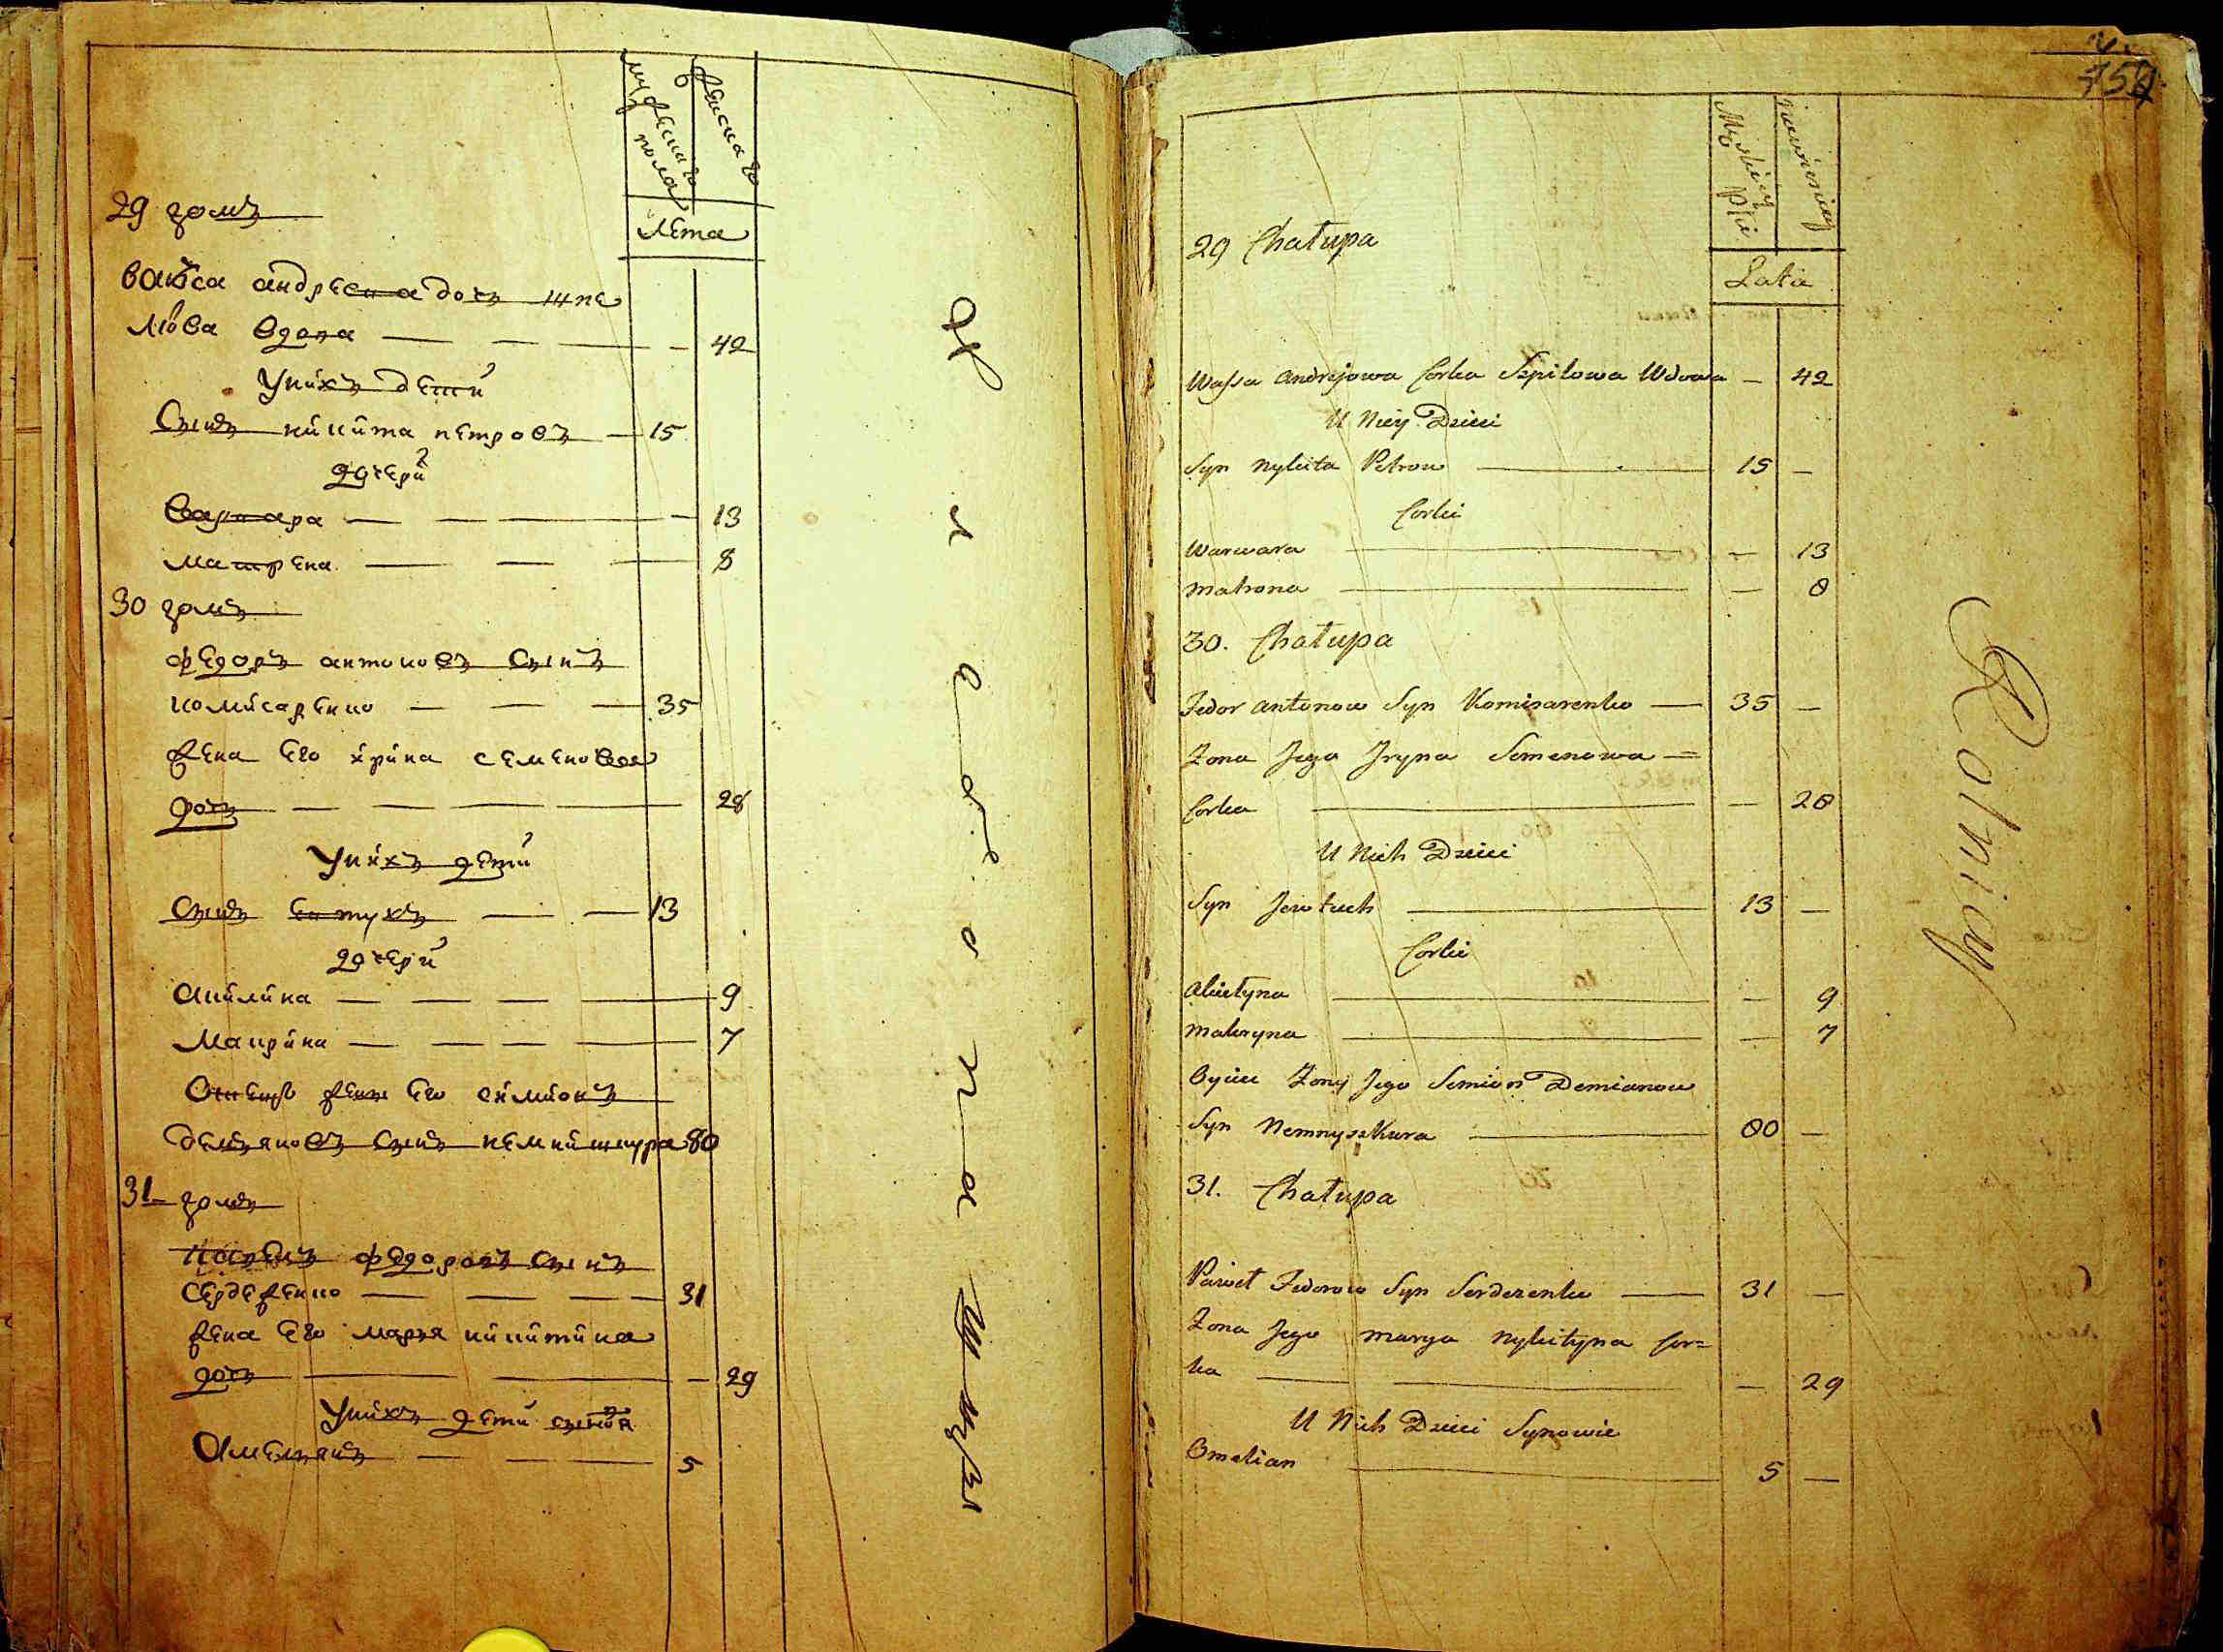 мужеска го пола
женска го
лета
29 домъ
васса андреева дочь шпе
люва вдова — — — 42
У нихъ дети
Сынъ никита петровъ — 15
дочери
варвара — — — — 13
матрена — — — 8
30 домъ
федоръ антоновъ Сынъ
комисаренко — — — 35
жена его ирина семенова
дочь — — — — 28
У нихъ дети
Сынъ евтухъ — — 13
дочери
Акилина — — — — 9
Макрина — — — — 7
Отецъ жены его симионъ
демяновъ Сынъ немишкура 80
31 домъ
павелъ федоровъ Сынъ
Серд*енко — — — 31
жена его марья никитина
дочь — — — 29
У нихъ дети сыновя
Омельянъ — — — 5
757
Męskiey płci
żenskiey
Lata
29 Chałupa
Wassa Andrejowa Corka Szpilowa Wdowa — 42
U Niey Dzieci
Syn Nykita Petrow — 15 —
Corki
Warwara — — 13
Matrona — — 8
30. Chałupa
Fedor Antonow Syn Komisarenko — 35 —
Zona Jego Jryna Semenowa =
Corka — — 28
U Nich Dzieci
Syn Jewtuch — 13 —
Corki
Akiełyna — — 9
Makryna — — 7
Oyciec Zony Jego Semion Demianow
Syn Nemnyszkura — 80 —
31. Chałupa
Paweł Fedorow Syn Serdezenko — 31 —
Zona Jego Marya Nykityna Cor=
ka — — — 29
U Nich Dzieci Synowie
Omelian — 5 —
Rolnicy